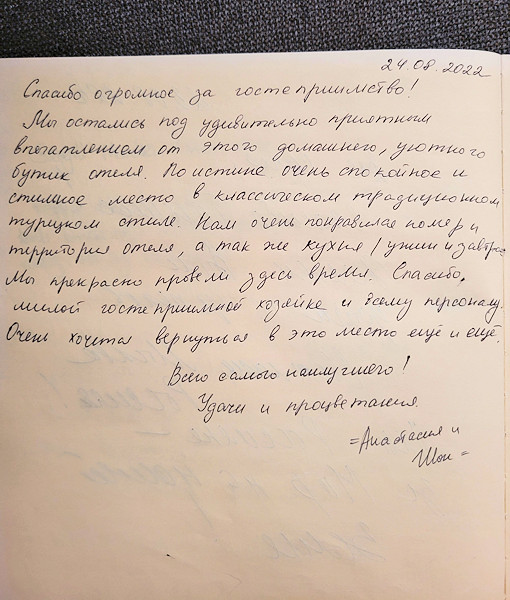 24.08.2022
Спасибо огромное за гостеприимство!
Мы остались под удивительно приятным
впечатлением от этого домашнего, уютного
бутик отеля. Поистине очень спокойное и
стильное место в классическом традиционном
турецком стиле. Нам очень понравился номер и
территория отеля, а так же кухня / ужин и завтрак
Мы прекрасно провели здесь время. Спасибо,
милой гостеприимной хозяйке и всему персоналу.
Очень хочется вернуться в это место ещё и ещё.
Всего самого наилучшего!
Удачи и процветания.
= Анастасия и
=